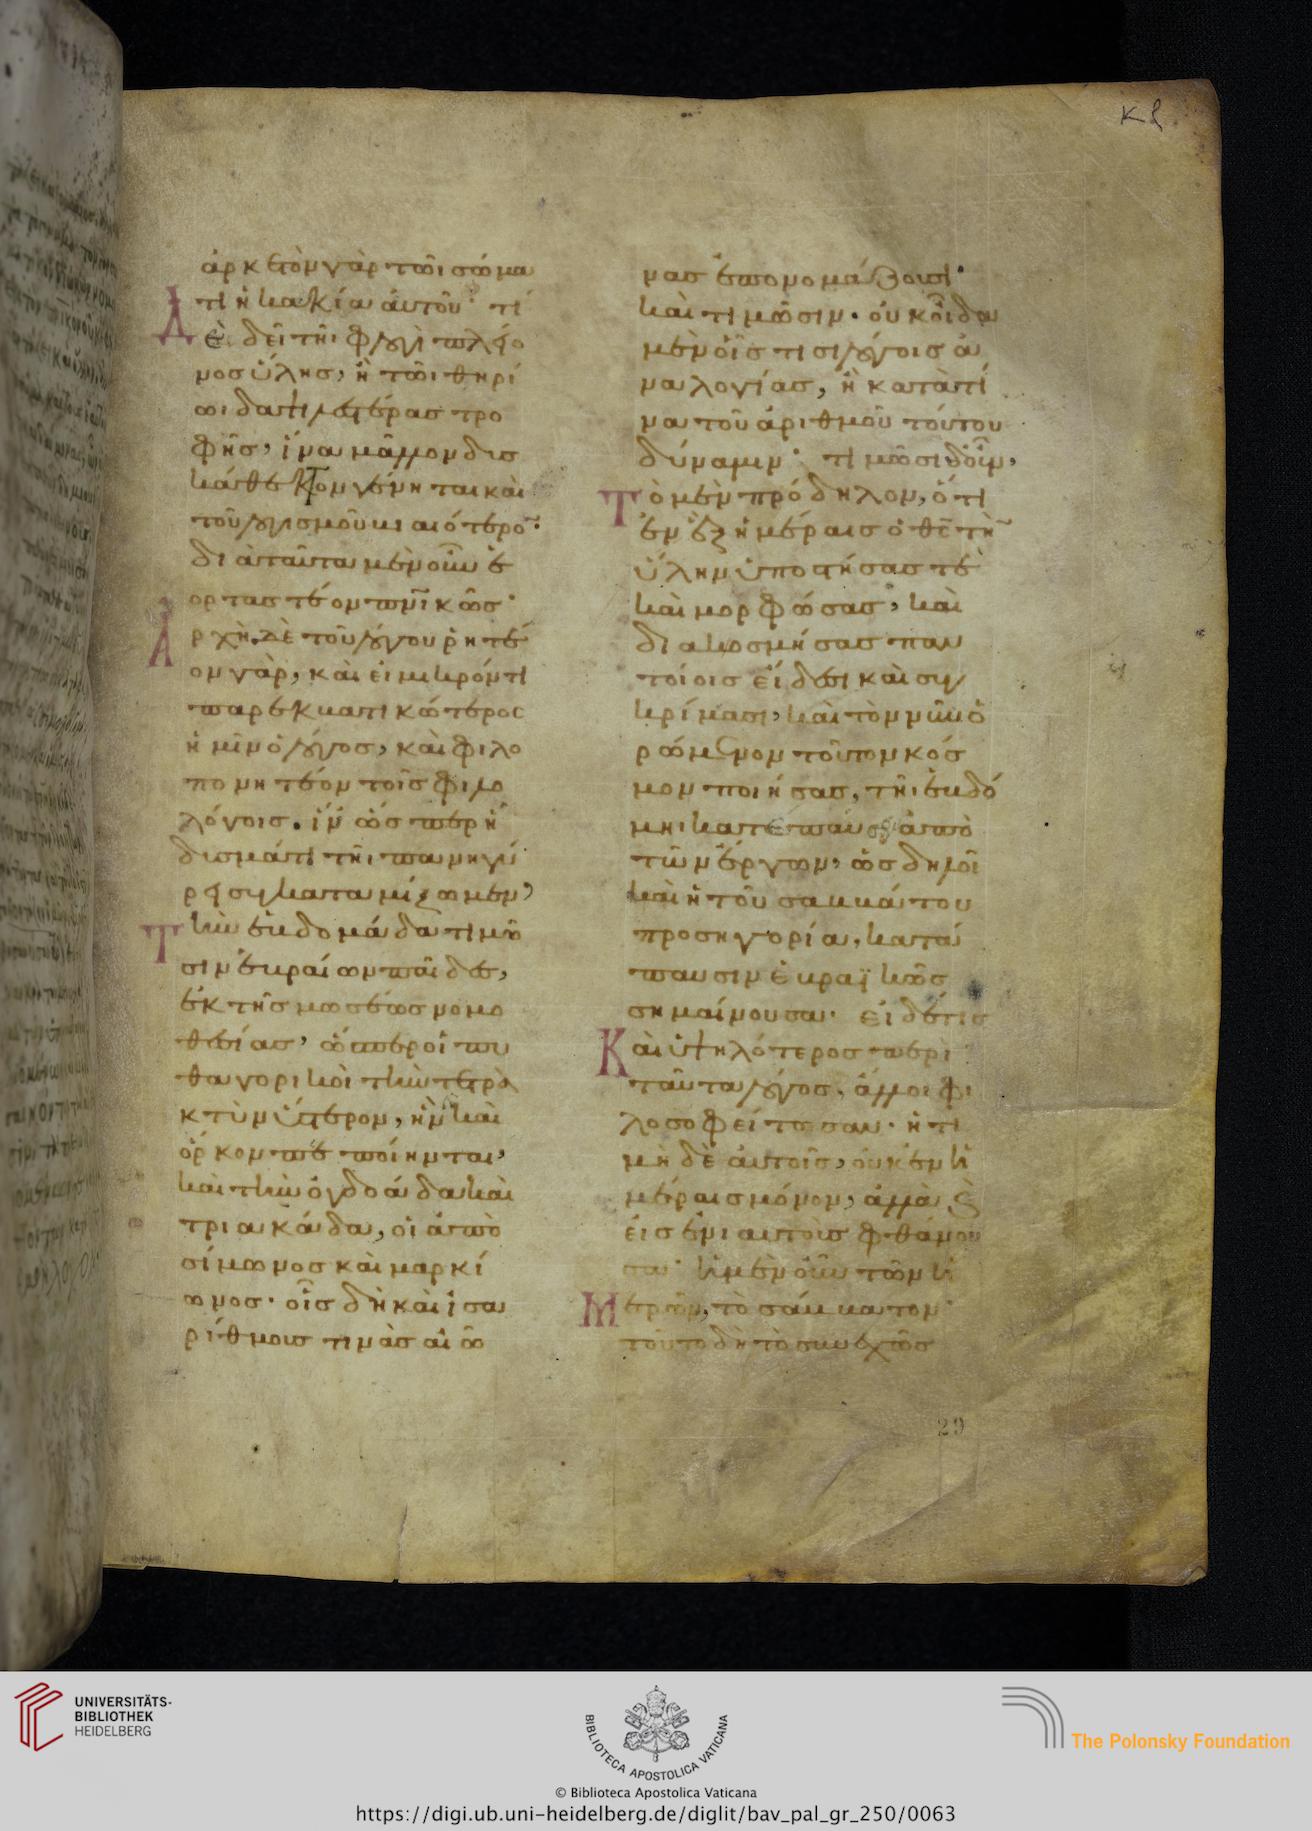 κθ
ἀρκετὸν γὰρ τῶι σώμα
τι ἡ κακία αὐτοῦ· τί
δὲ δεῖ τῆι φλογὶ πλείο
νος ὕλης, ἢ τῶι θηρί
ωι δαψιλεστέρας τρο
φῆς, ἵνα μᾶλλον δυσ
κάθεκτον γένηται καὶ
τοῦ λογισμοῦ βιαιότερον·
διὰ ταῦτα μὲν οὖν ἑ
ορταστέον πνικῶς·
ἀρχὴ δὲ τοῦ λόγου ῥητέ
ον γὰρ, καὶ εἰ μικρόν τι
παρεκβατικώτερος
ἡμῖν ὁ λόγος, καὶ φιλο
πονητέον τοῖς φιλο
λόγοις. ἵν' ὥσπερ ἥ
δυσμά τι τῆι πανηγύ
ρει συγκαταμίξωμεν,
Τὴν ἑβδομάδα τιμῶ
σιν ἑβραίων παῖδες,
ἐκ τῆς μωσέως νομο
θεσίας, ὥσπερ οἱ πυ
θαγορικοὶ τὴν τετρα
κτὺν ὕστερον, ἣν δὴ καὶ
ὅρκον πεποίηνται,
καὶ τὴν ὀγδοάδα καὶ
τριακάδα, οἱ ἀπὸ
σίμωνος καὶ μαρκί
ωνος· οἷς δὴ καὶ ἰσα
ρίθμους τινὰς αἰῶ
νας ἐπονομάζουσι·
καὶ τιμῶσιν. οὐκ οἶδα
μὲν οἷς τισι λόγοις ἀ
ναλογίας, ἢ κατὰ τί
να τοῦ ἀριθμοῦ τούτου
δύναμιν· τιμῶσι δ' οὖν,
Τὸ μὲν πρόδηλον, ὅτι
ἐν ἓξ ἡμέραις ὁ θς τὴν
ὕλην ὑποστήσας τὲ
καὶ μορφώσας, καὶ
διακοσμήσας παν
τοίοις εἴδεσι καὶ συγ
κρίμασι, καὶ τὸν νῦν ὁ
ρώμενον τοῦτον κόσ
μον ποιήσας, τῆι ἑβδό
μηι κατέπαυσεν ἀπὸ
τῶν ἔργων, ὡς δηλοῖ
καὶ ἡ τοῦ σαββάτου
προσηγορία, κατά
παυσιν ἑβραϊκῶς
σημαίνουσα· εἰ δέ τις
Καὶ ὑψηλότερος περὶ
ταῦτα λόγος, ἄλλοι φι
λοσοφείτωσαν· ἡ τι
μὴ δὲ αὐτοῖς, οὐκ ἐν ἡ
μέραις μόνον, ἀλλὰ καὶ
εἰς ἐνιαυτοὺς φθάνου
σα· ἡ μὲν οὖν τῶν ἡ
Μερῶν, τὸ σάββατον·
τοῦτο δὴ τὸ συνεχῶς
29
UNIVERSITÄTS-
BIBLIOTHEK
HEIDELBERG
BIBLIOTECA APOSTOLICA VATICANA
The Polonsky Foundation
© Biblioteca Apostolica Vaticana
https://digi.ub.uni-heidelberg.de/diglit/bav_pal_gr_250/0063